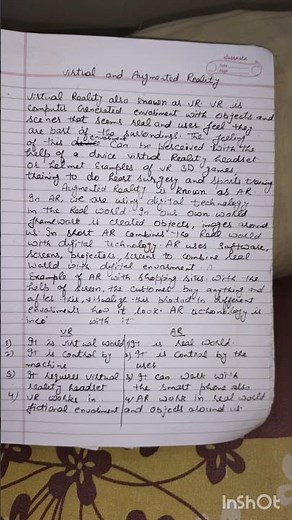 classmate
Date
Page
Virtual and Augmented Reality
Virtual Reality also known as VR VR is
computer Generated enviorment with objects and
scenes that seems real and users feel they
are part of the surroundings. The feeling
of this enviorment can be perceived with the
help of a device virtual Reality headset
or helmet Examples of VR 3D games,
training to do Heart surgery and sports training
Augmented Reality is known as AR.
In AR, we are using digital technology
in the real world. In our own world
framework is created objects, images around
us In short AR combines the Real world
with digital technology. AR uses software,
screens, projectors, screens to combine real
world with digital enviorment.
Example of AR with shopping sites. With the
help of screen, the customer buy anything and
after this, visualize this product in different
enviorments how it look. AR technology is
with it
VR AR
1) It is virtual world 1) It is real world
2) It is control by 2) It is control by the
machine user
3) It requires virtual 3) It can work with
reality headset the smart phone also
4) VR works in 4) AR work in real world
fictional enviorment and objects around us
InShOt